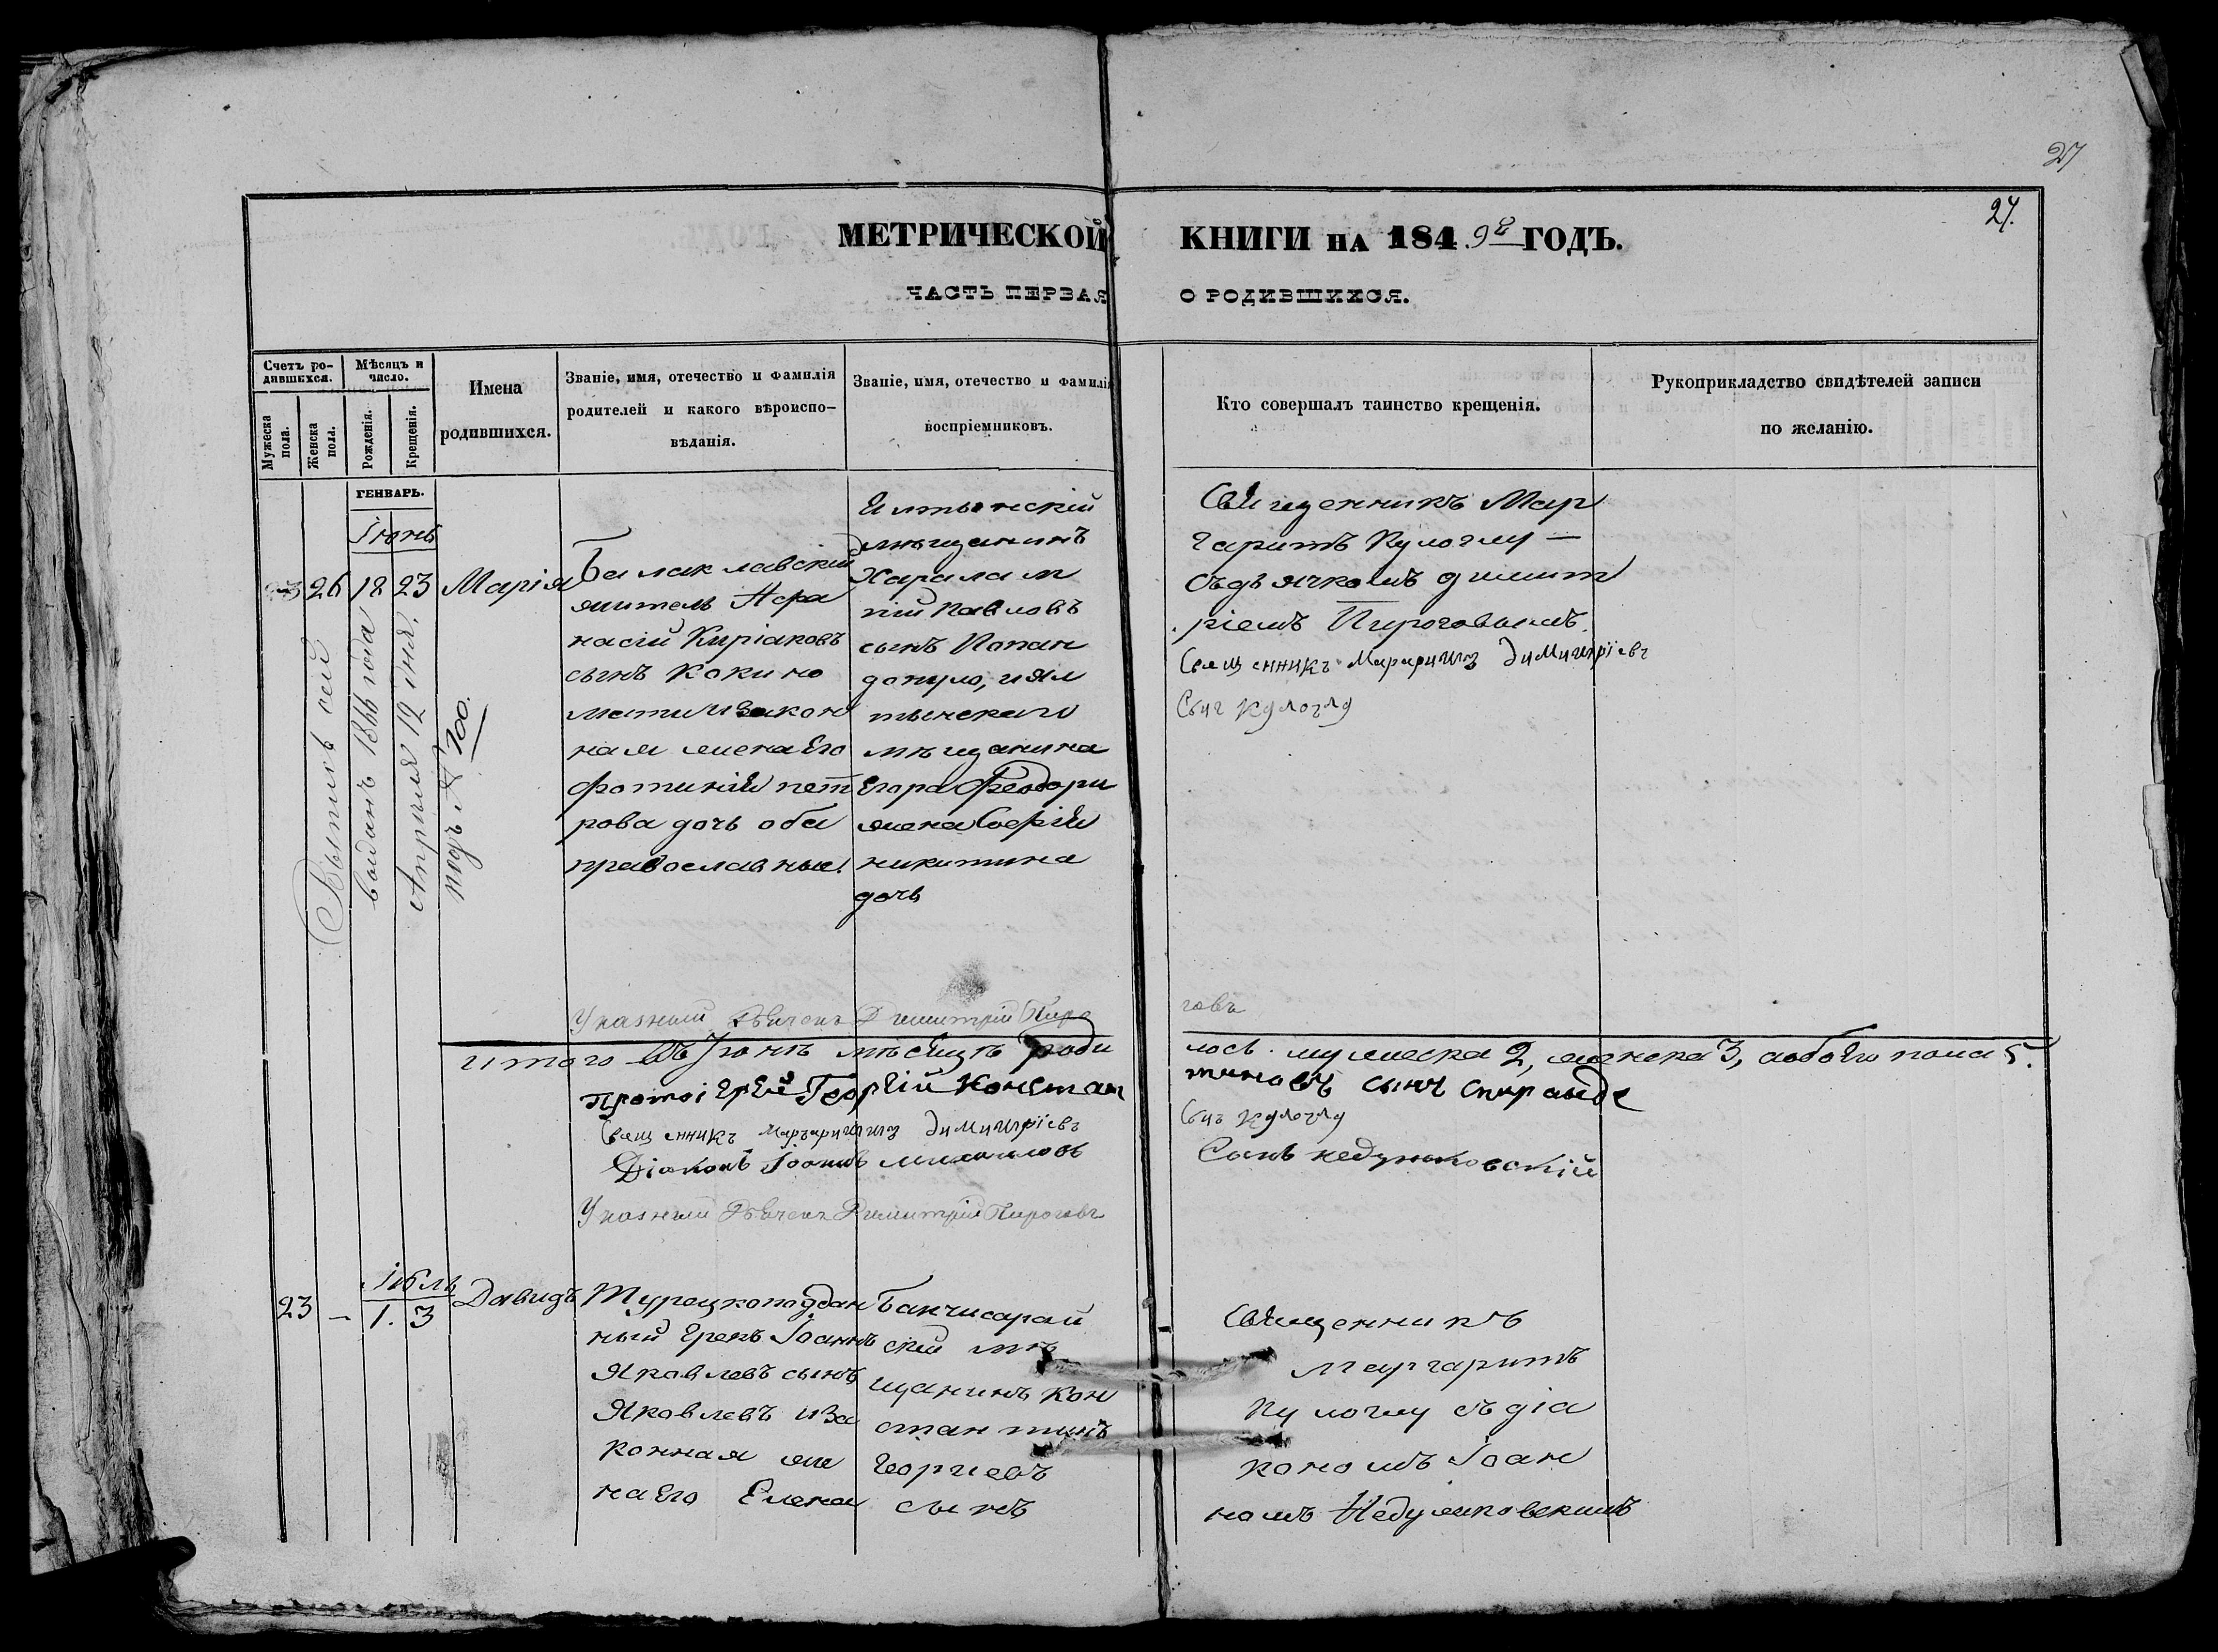 27
24.
МЕТРИЧЕСКОЙ КНИГИ НА 1849й ГОДЪ.
ЧАСТЬ ПЕРВАЯ О РОДИВШИХСЯ.
Счетъ ро-
дившихся.
Мужеска
пола.
Женска
пола.
Мѣсяцъ и
число.
Рожденія.
Крещенія.
Имена
родившихся.
Званіе, имя, отечество и фамилія
родителей и какого вѣроиспо-
вѣданія.
Званіе, имя, отечество и фамилія
воспріемниковъ.
Кто совершалъ таинство крещенія.
Рукоприкладство свидѣтелей записи
по желанію.
ГЕНВАРЬ.
Іюнь
26 18 23 Марія
Балаклавскій
житель Афа
насій Киріаковъ
сынъ Кокино
мати изакон
ная жена Его
Фотинія пет
рова дочь оба
православные.
Ялтынскій
мѣщанинъ
Харалам
пій Павловъ
сынъ Попан
допуло, и ял
тынскаго
мѣщанина
Егора Феодори
жена Софія
никитина
дочь
Священникъ Мар
гаритъ Кулоглу —
съдьячкомъ димит
ріемъ Пироговымъ.
Священникъ Маргаритъ Димитріевъ
Сынъ Кулоглу
Выпись сей
выданъ 1866 года
Апрѣля 12 дня.
подъ № 700.
Указный Дьячекъ Димитрій Пиро
говъ
итого въ Іюнѣ мѣсяцѣ роди
лось мужеска 2, женска 3, аобоего пола 5.
Протоіерей Георгій Констан
тиновъ сынъ Спиранде
Священникъ Маргаритъ Димитріевъ
Сынъ Кулоглу
Діаконъ Іоаннъ михаиловъ
Сынъ недумковскій
Указный Дьячекъ Димитрій Пироговъ
Іюль
23 — 1. 3 Давидъ
Турецкоподдан
ный Грекъ Іоаннъ
Яковлевъ сынъ
Яковлевъ иза
конная же
на Его Елена
Бакчисарай
скій мѣ
щанинъ Кон
стантинъ
Георгіевъ
сынъ
Священникъ
Маргаритъ
Кулоглу съдіа
кономъ Іоан
номъ Недумковскимъ